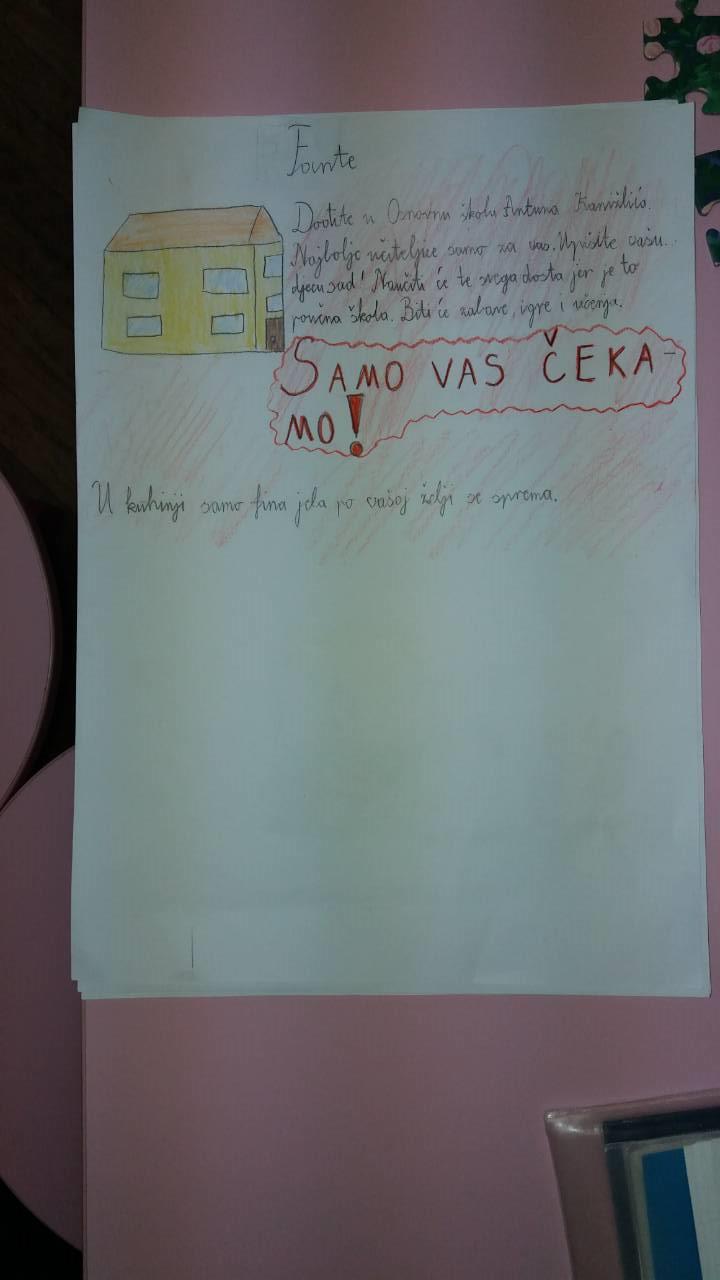 Dođite u Osnovnu školu Antuna Kanižlića.
Najbolje učiteljice samo za vas. Upišite vašu
djecu sad! Naučiti će te svega dosta jer je to
poučna škola. Biti će zabave, igre i učenja.
SAMO VAS ČEKA-
MO!
U kuhinji samo fina jela po vašoj želji se sprema.